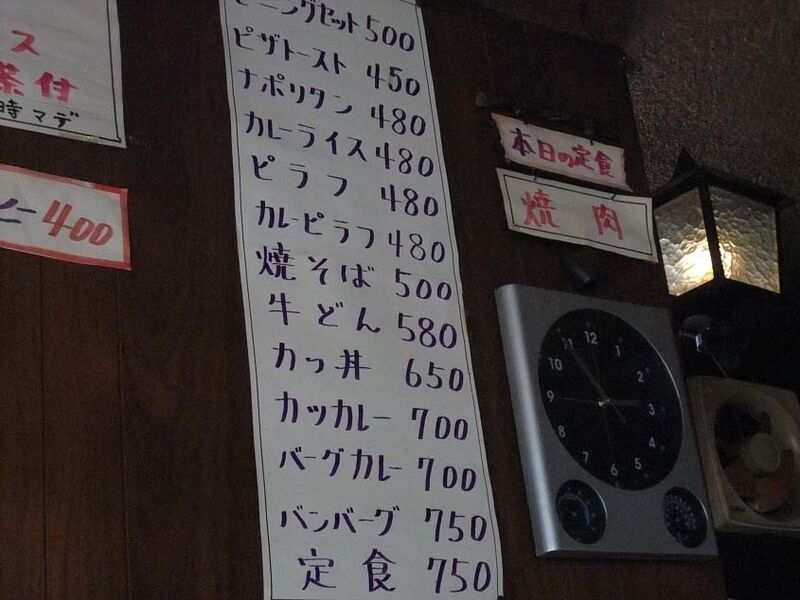 ス
茶付
時マデ
ヒー 400
ーニングセット 500
ピザトースト 450
ナポリタン 480
カレーライス 480
ピラフ 480
カレーピラフ 480
焼そば 500
牛どん 580
カツ丼 650
カツカレー 700
バーグカレー 700
バンバーグ 750
定食 750
本日の定食
焼肉
12
1
2
3
4
5
6
7
8
9
10
11